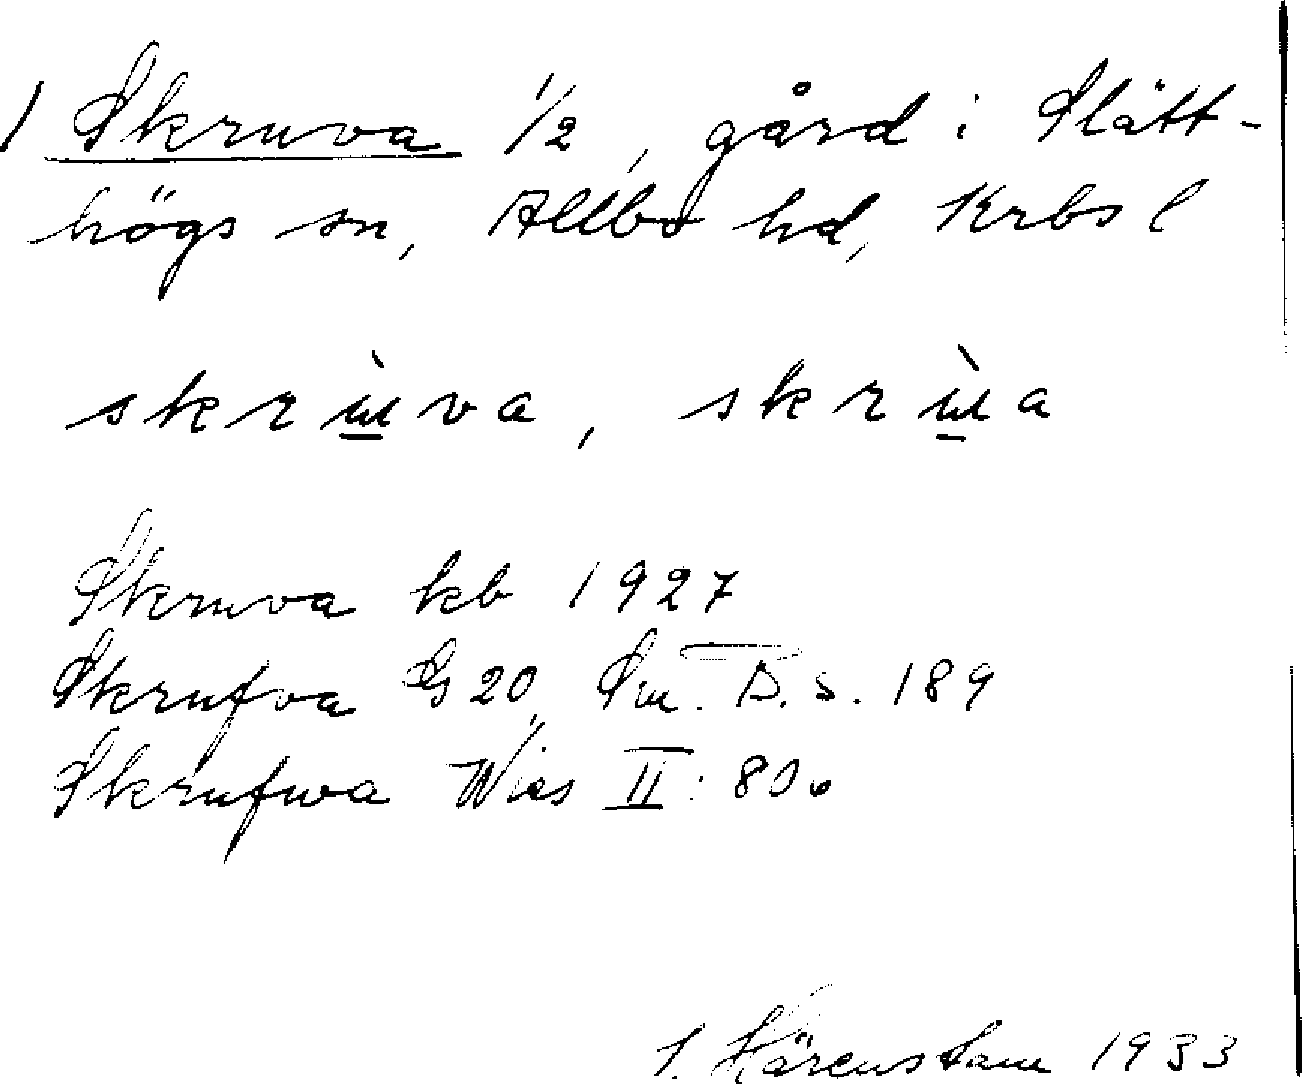 1 Skruva 1/2, gård i Slätt-
högs sn, Allbo hd, Krbs l
skrɯ̀va, skrɯ̀a
Skruva kb 1927
Skrufva G 20, Sm. T.D.s. 189
Skrufwa Wies II: 806
S. Härenstam 1933